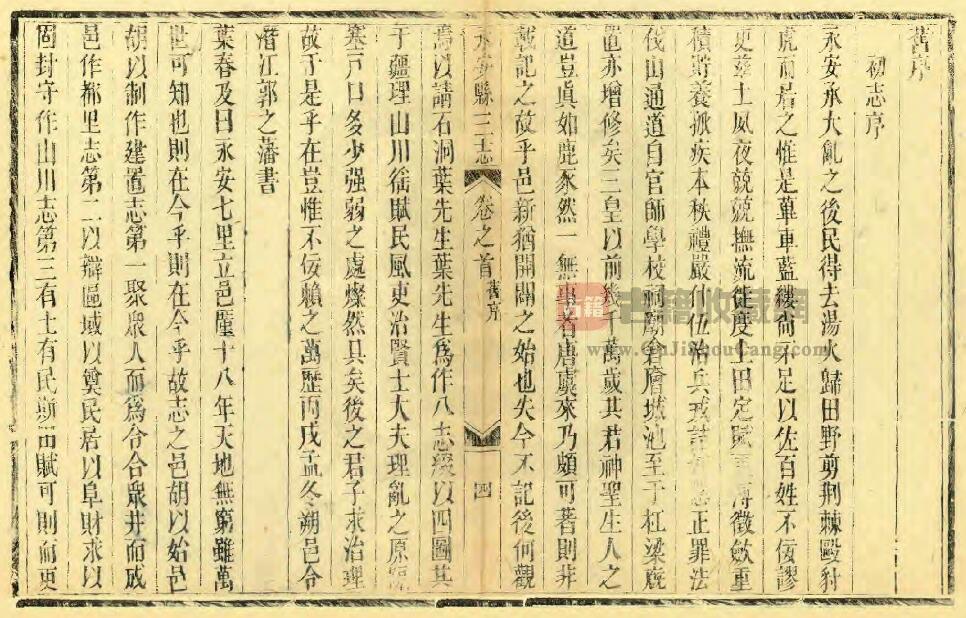 舊序
初志序
永安承大亂之後民得去湯火歸田野剪荆棘毆豺
虎而居之惟是蓽車藍縷尚不足以佐百姓不佞謬
更茲土夙夜兢兢撫流徙度土田定賦 徵斂重
積貯養孤疾本秩禮嚴什伍治兵戎詰 正罪法
伐山通道自官師學校祠廟倉廥城池至于杠梁廐
置亦增修矣三皇以前幾千萬歲其君神聖生人之
道豈眞如鹿豕然一無事者唐虞來乃頗可著則非
載記之故乎邑新猶開闢之始也失今不記後何觀
永安縣三志 卷之首 舊序 四
焉以請石洞葉先生葉先生爲作八志綬以四圖其
于疆理山川徭賦民風吏治賢士大夫理亂之原
塞戸口多少强弱之處燦然具矣後之君子求治理
故于是乎在豈惟不佞賴之萬歷丙戌孟冬朔邑令
晉江郭之藩書
葉春及曰永安七里立邑厪十八年天地無窮雖萬
世可知也則在今乎則在今乎故志之邑胡以始邑
胡以制作建置志第一聚衆人而爲合合衆井而成
邑作都里志第二以辯區域以奠民居以阜財求以
固封守作山川志第三有土有民斯田賦可則而更
書籍收藏網
古籍
www.GuJiShouCang.com